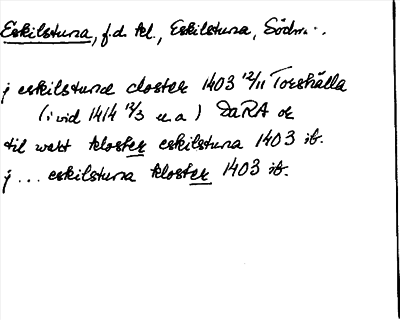 Eskilstuna, f.d. kl., Eskilstuna, Södm.
j eskilstuna closter 1403 12/11 Torshälla
(i vid 1414 12/3 u.a) DaRA or
til wart kloster eskilstuna 1403 ib.
j ... eskilstuna kloster 1403 ib.